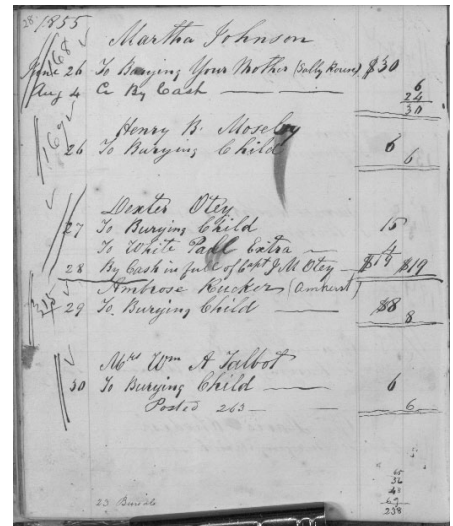 28 1855
168
Martha Johnson
June 26 To Burying Your Mother (Sally ) $30
6
Aug 4 Cr By Cash 24
30
169
Henry B. Moseley
26 To Burying Child 6
6
Dexter Otey
27 To Burying Child 15
To White Pall Extra 4
28 By Cash in full of Capt J. M Otey $19 $19
Ambrose Rucker (Amherst)
315
29 To Burying Child $8
8
Mrs Wm A Talbot
30 To Burying Child 6
Posted 263 6
23 Burials
65
36
48
69
238